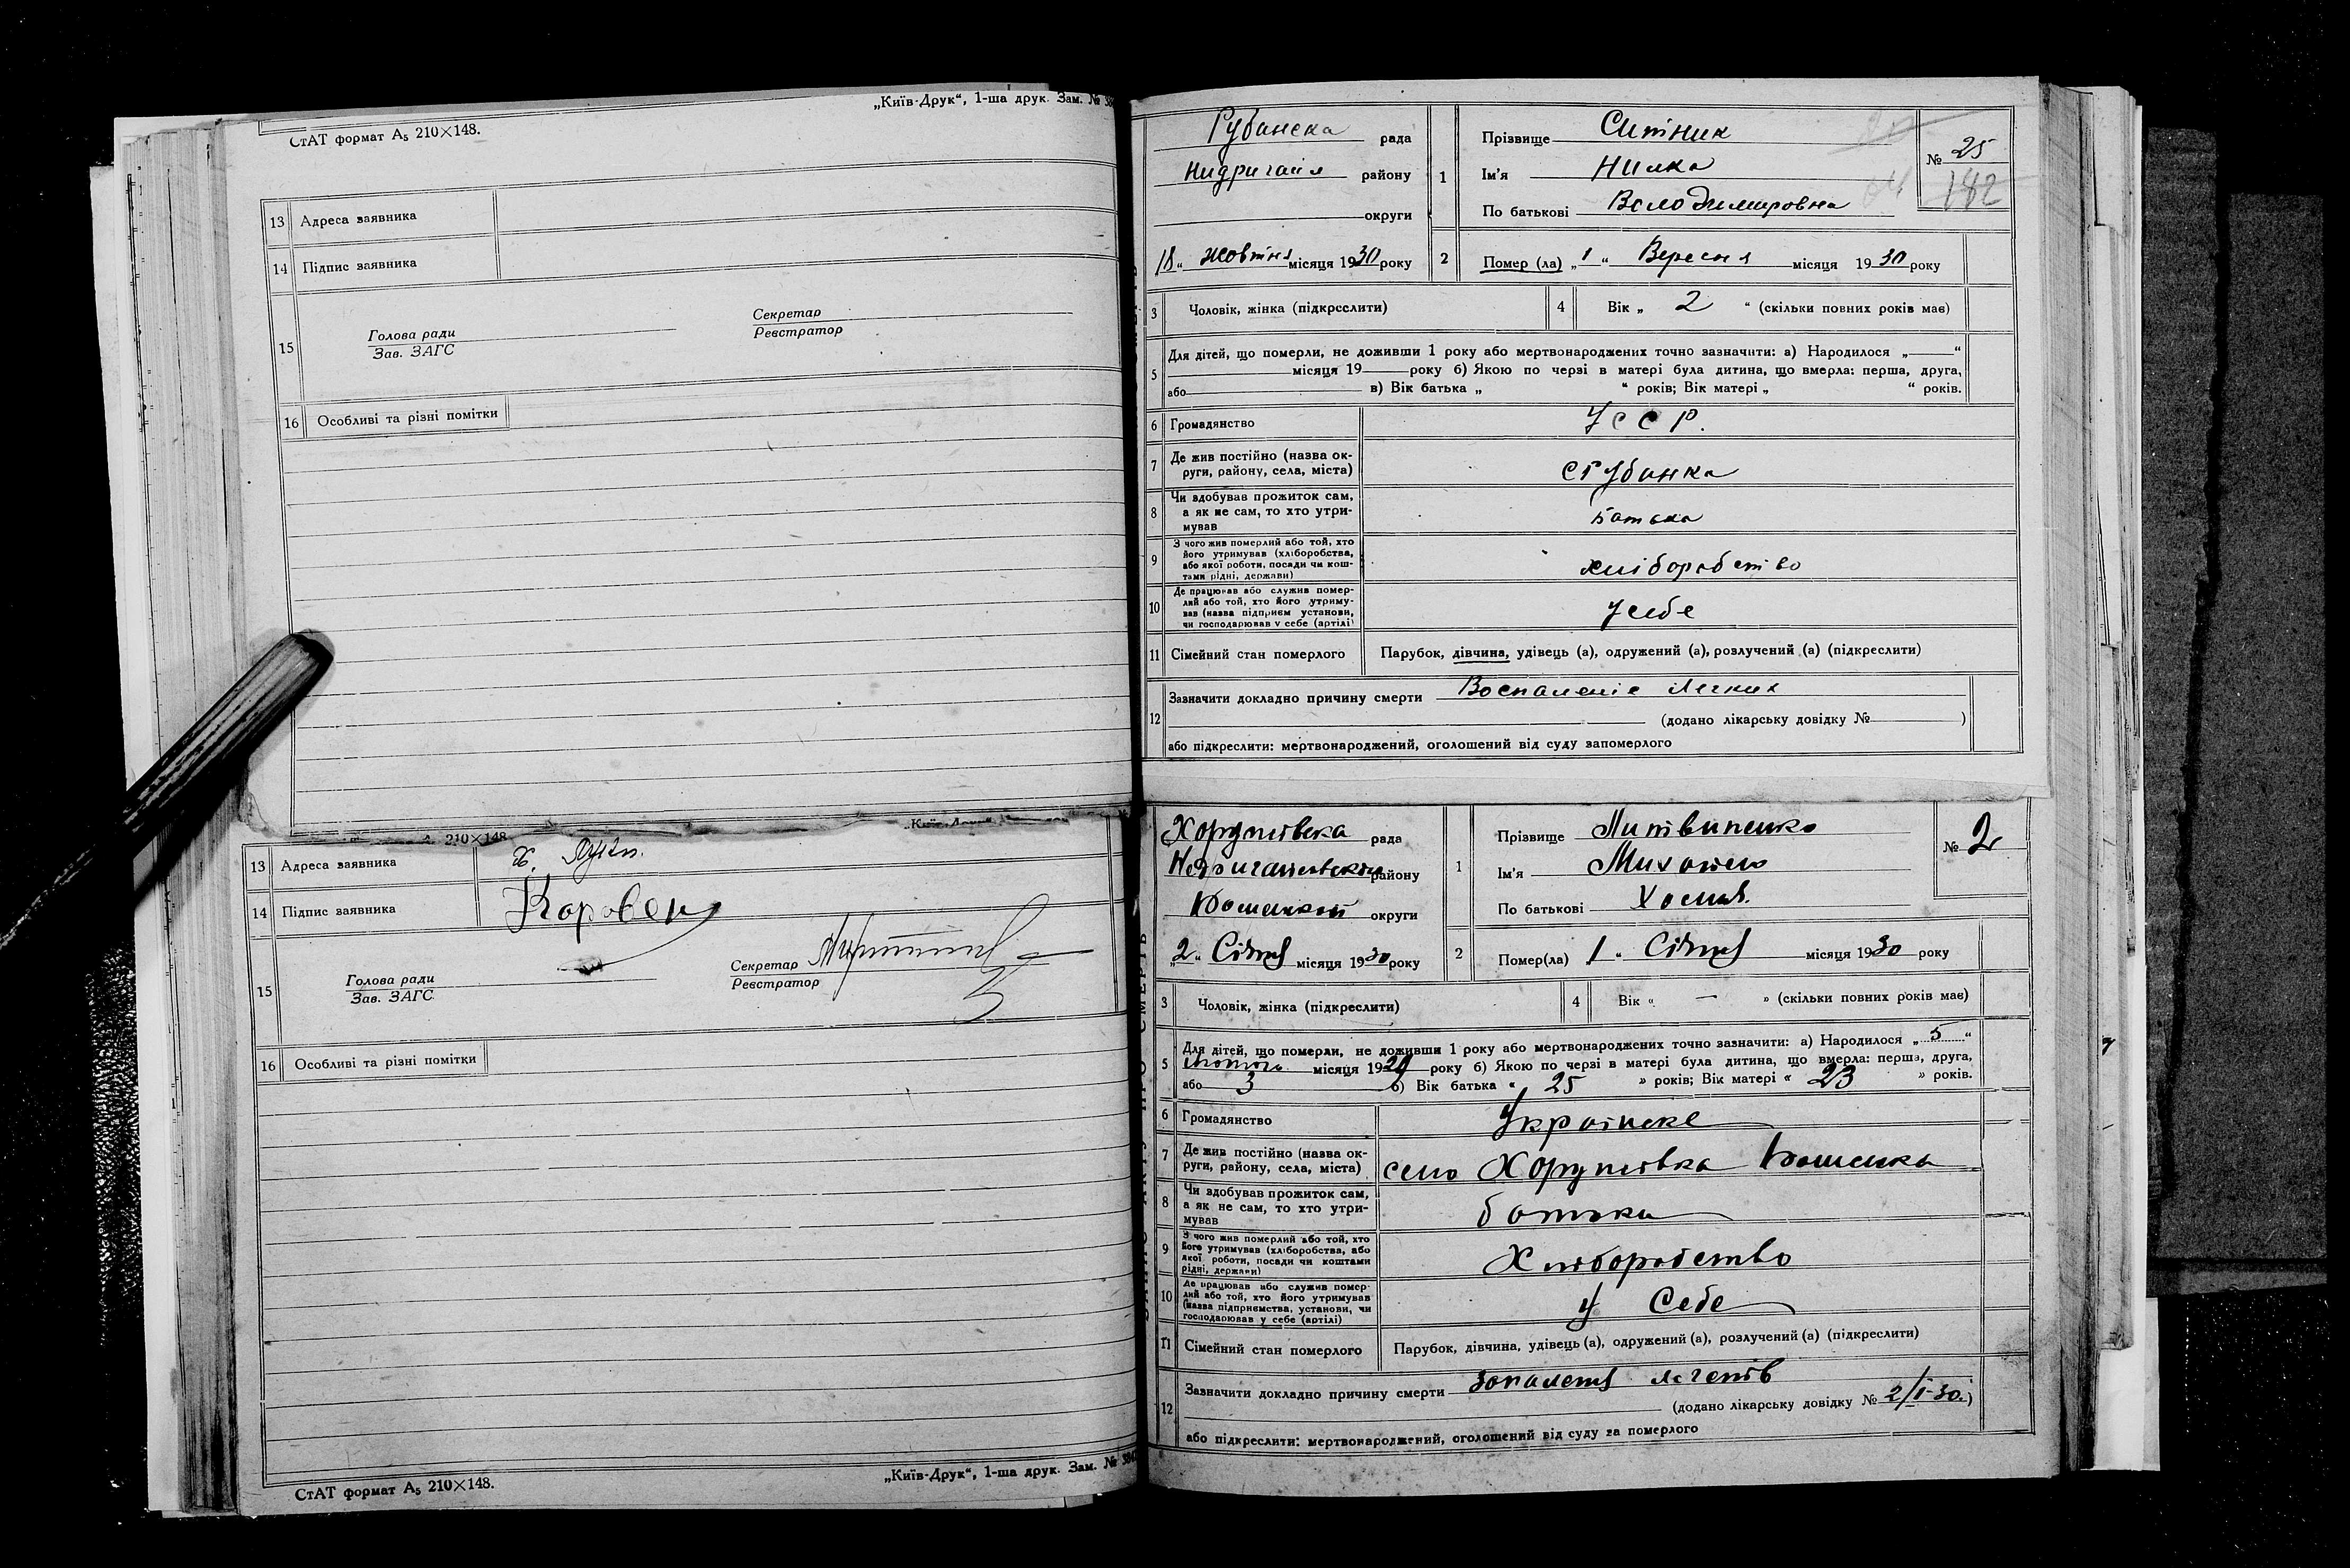 „Київ-Друк“, 1-ша друк. Зам. №
СтАТ формат А₅ 210×148.
13 Адреса заявника
14 Підпис заявника
15 Голова ради
Зав. ЗАГС
Секретар
Реєстратор
16 Особливі та різні помітки
210×148
13 Адреса заявника х.
14 Підпис заявника
15 Голова ради
Зав. ЗАГС
Секретар
Реєстратор
16 Особливі та різні помітки
СтАТ формат А₅ 210×148.
„Київ-Друк“, 1-ша друк. Зам. №
Рубанска рада
района
округи
18 „ жовтня місяця 1930 року
1 Прізвище Ситник
Ім'я
По батькові Володимировна
№ 25
182
2 Помер (ла) „ 1 “ Вересня місяця 1930 року
3 Чоловік, жінка (підкреслити)
4 Вік „ 2 “ (скільки повних років має)
5 Для дітей, що померли, не доживши 1 року або мертвонароджених точно зазначити: а) Народилося „ “
місяця 19 року б) Якою по черзі в матері була дитина, що вмерла: перша, друга,
або в) Вік батька „ “ років; Вік матері „ “ років.
6 Громадянство УССР.
7 Де жив постійно (назва ок-
руги, району, села, міста) с Рубанка
8 Чи здобував прожиток сам,
а як не сам, то хто утри-
мував батька
9 З чого жив померлий або той, хто
його утримував (хліборобства,
або якої роботи, посади чи кош-
тами рідні, держави) хліборобство
10 Де працював або служив помер-
лий або той, хто його утриму-
вав (назва підприєм установи,
чи господарював у себе (артілі) У себе
11 Сімейний стан померлого Парубок, дівчина, удівець (а), одружений (а), розлучений (а) (підкреслити)
12 Зазначити докладно причину смерти Воспаленіє Легких
(додано лікарську довідку № )
або підкреслити: мертвонароджений, оголошений від суду запомерлого
рада
району
округи
„2„ Січня місяця 1930 року
1 Прізвище Литвиненко
Ім'я Михайло
По батькові
№ 2
2 Помер(ла) 1 „ Січня місяця 1930 року
3 Чоловік, жінка (підкреслити)
4 Вік “ — » (скільки повних років має)
5 Для дітей, що померли, не доживши 1 року або мертвонароджених точно зазначити: а) Народилося „ 5 “
місяця 1929 року б) Якою по черзі в матері була дитина, що вмерла: перша, друга,
або 3 в) Вік батька “ 25 » років; Вік матері “ 23 » років.
6 Громадянство Українске
7 Де жив постійно (назва ок-
руги, району, села, міста) село Хоружівка
8 Чи здобував прожиток сам,
а як не сам, то хто утри-
мував батька
9 З чого жив померлий або той, хто
його утримував (хліборобства, або
якої роботи, посади чи коштами
рідні, держави) Хліборобство
10 Де працював або служив помер-
лий або той, хто його утримував
(назва підприємства, установи, чи
господарював у себе (артілі) у Себе
11 Сімейний стан померлого Парубок, дівчина, удівець (а), одружений (а), розлучений (а) (підкреслити)
12 Зазначити докладно причину смерти Запалення легенів
(додано лікарську довідку № 2/I-30.)
або підкреслити: мертвонароджений, оголошений від суду за померлого